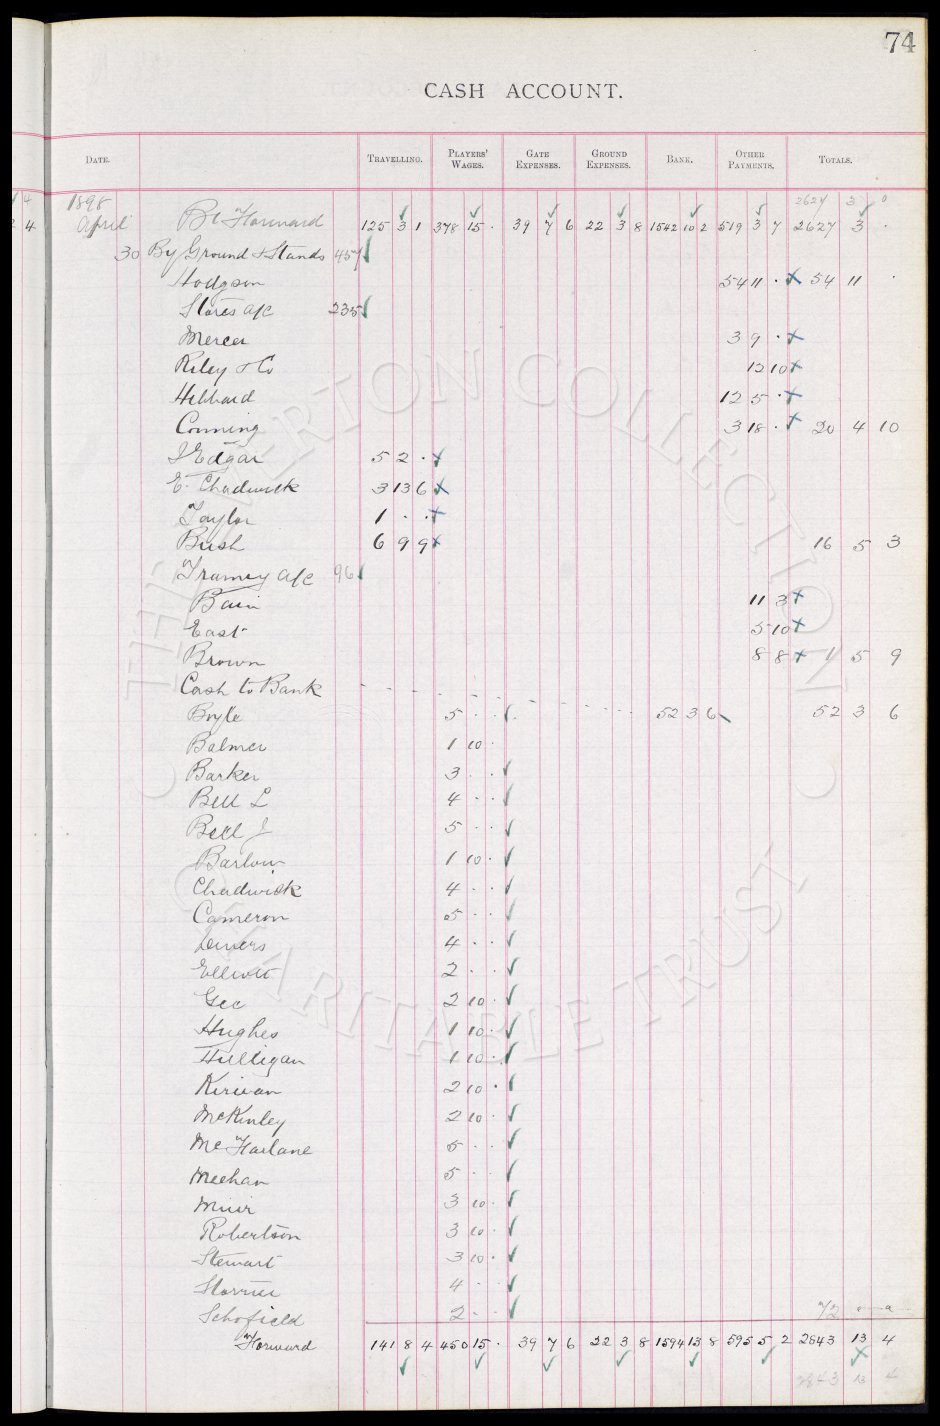 74
CASH ACCOUNT.
DATE. TRAVELLING. PLAYERS' WAGES. GATE EXPENSES. GROUND EXPENSES. BANK. OTHER PAYMENTS. TOTALS.
4 1898 2627 3 0
4 April Bt Forward 125 3 1 378 15 . 39 7 6 22 3 8 1542 10 2 519 3 7 2627 3 .
30 By Ground & Stands 457
Hodgson 54 11 . 54 11 .
Stores a/c 235
Mercer 3 9 .
Riley & Co 12 10
Hibbard 12 5 .
Conning 3 18 . 20 4 10
J Edgar 5 2 .
E. Chadwick 3 13 6
Taylor 1 . .
Bush 6 9 9 16 5 3
Tranmey a/c 96
Bain 11 3
East 5 10
Brown 8 8 1 5 9
Cash to Bank
Boyle 5 . . 52 3 6 52 3 6
Balmer 1 10 .
Barker 3 . .
Bell L 4 . .
Bell J 5 . .
Barlow 1 10 .
Chadwick 4 . .
Cameron 5 . .
Divers 4 . .
Elliott 2 . .
Gee 2 10 .
Hughes 1 10 .
Hulligan 1 10 .
Kirwan 2 10 .
McKinley 2 10 .
McFarlane 5 . .
Meehan 5 . .
Muir 3 10 .
Robertson 3 10 .
Stewart 3 10 .
Storrier 4 . .
Schofield 2 . . 72
Forward 141 8 4 450 15 . 39 7 6 22 3 8 1594 13 8 595 5 2 2843 13 4
2843 13 4
© THE EVERTON COLLECTION CHARITABLE TRUST